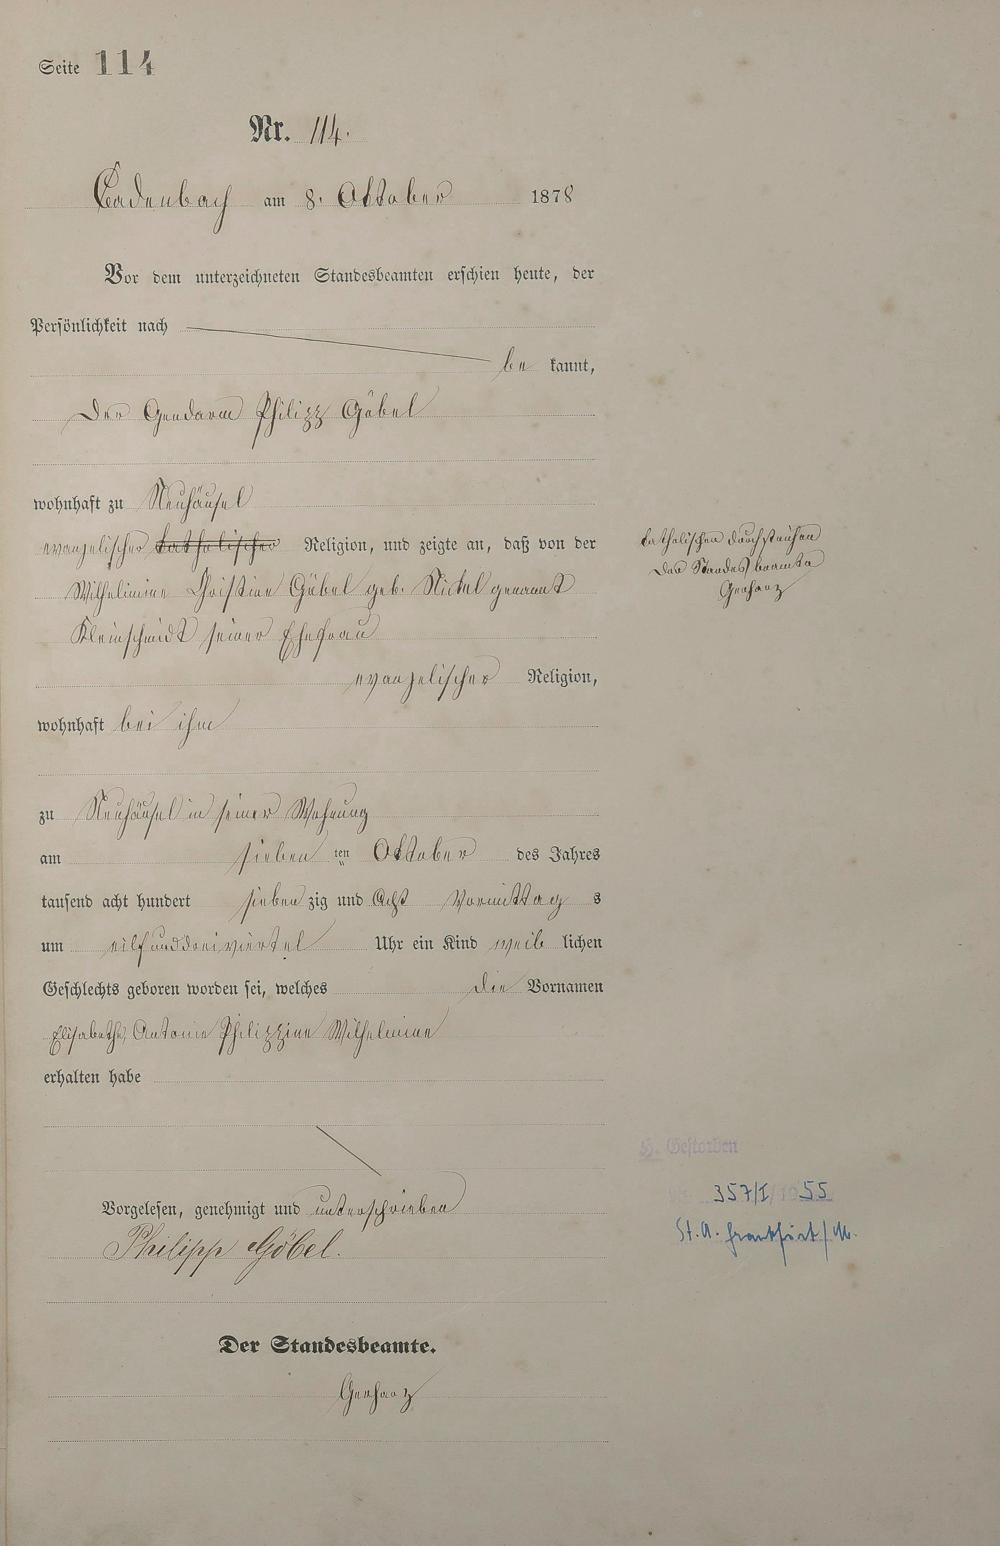 Seite 114
Nr. 114.
Cadenbach am 8. Oktober 1878
Vor dem unterzeichneten Standesbeamten erschien heute, der
Persönlichkeit nach
be kannt,
Der Gendarm Philipp Göbel
wohnhaft zu Neuhäusel
evangelischer katholischer Religion, und zeigte an, daß von der
Wilhelmine Christine Göbel geb. Nickel genannt
Kleinschmidt seiner Ehefrau
evangelischer Religion,
wohnhaft bei ihm
zu Neuhäusel in seiner Wohnung
am sieben ten Oktober des Jahres
tausend acht hundert sieben zig und Acht Vormittag s
um eilfunddreiviertel Uhr ein Kind weib lichen
Geschlechts geboren worden sei, welches die Vornamen
Elisabethe Antonie Philippine Wilhelmine
erhalten habe
Vorgelesen, genehmigt und unterschrieben
Philipp Göbel.
Der Standesbeamte.
Gerharz
katholischen durchstrichen
Der Standesbeamte
Gerharz
H. Gestorben
357/I/1955
St. A. Frankfurt/M.